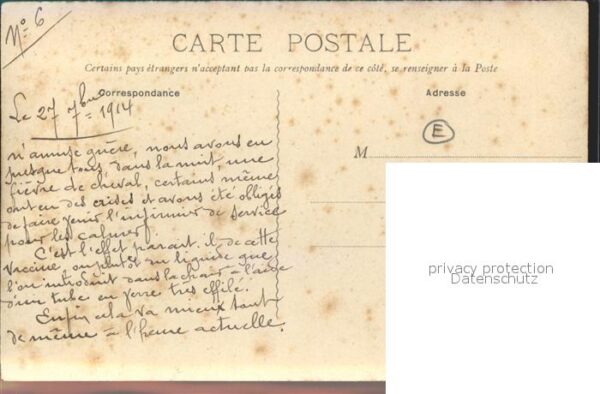 N° 6
CARTE POSTALE
Certains pays étrangers n'acceptant pas la correspondance de ce côté, se renseigner à la Poste
Correspondance
Adresse
Le 27 7bre 1914
E
M
n'amuse guère, nous avons eu
presque tous, dans la nuit, une
fièvre de cheval, certains même
ont eu des crises et avons été obligés
de faire venir l'infirmier de service
pour les calmer.
C'est l'effet parait il, de cette
vaccine, ou plutôt du liquide que
l'on introduit dans la chair à l'aide
d'un tube en verre très effilé.
Enfin cela va mieux tout
de même à l'heure actuelle.
privacy protection
Datenschutz